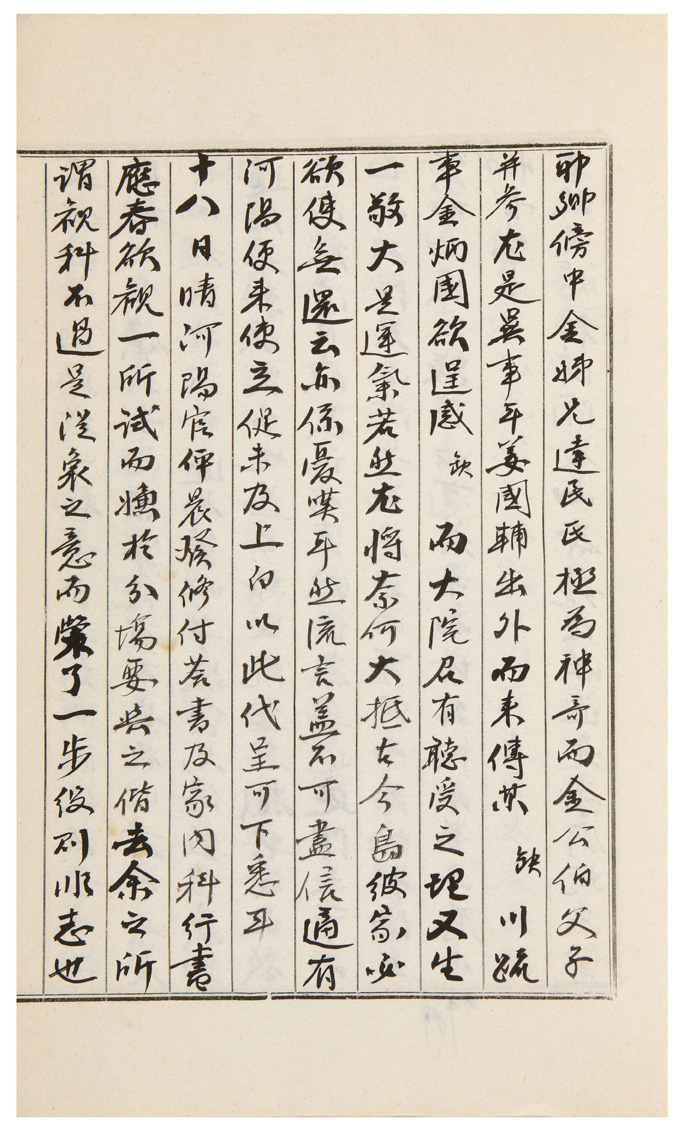 聊卿傍中金姊兄達民氏極爲神哥而金公伯父子
并參尤是異事耳姜國輔出外而来傳其 缺 川疏
事金炳國欲逞感 缺 而大院君有聽受之理又生
一敬大是運氣若然尤將奈何大抵古今島彼家必
欲使無還云亦係憂嘆耳然流言盖不可盡信適有
河陽便来使立促未及上白以此代呈可下悉耳
十八日晴河陽官伻晨發修付答書及家內科行書
應春欲観一所試而嫌於分塲要與之偕去余之所
謂観科不過是從衆之意而榮了一步役則順志也